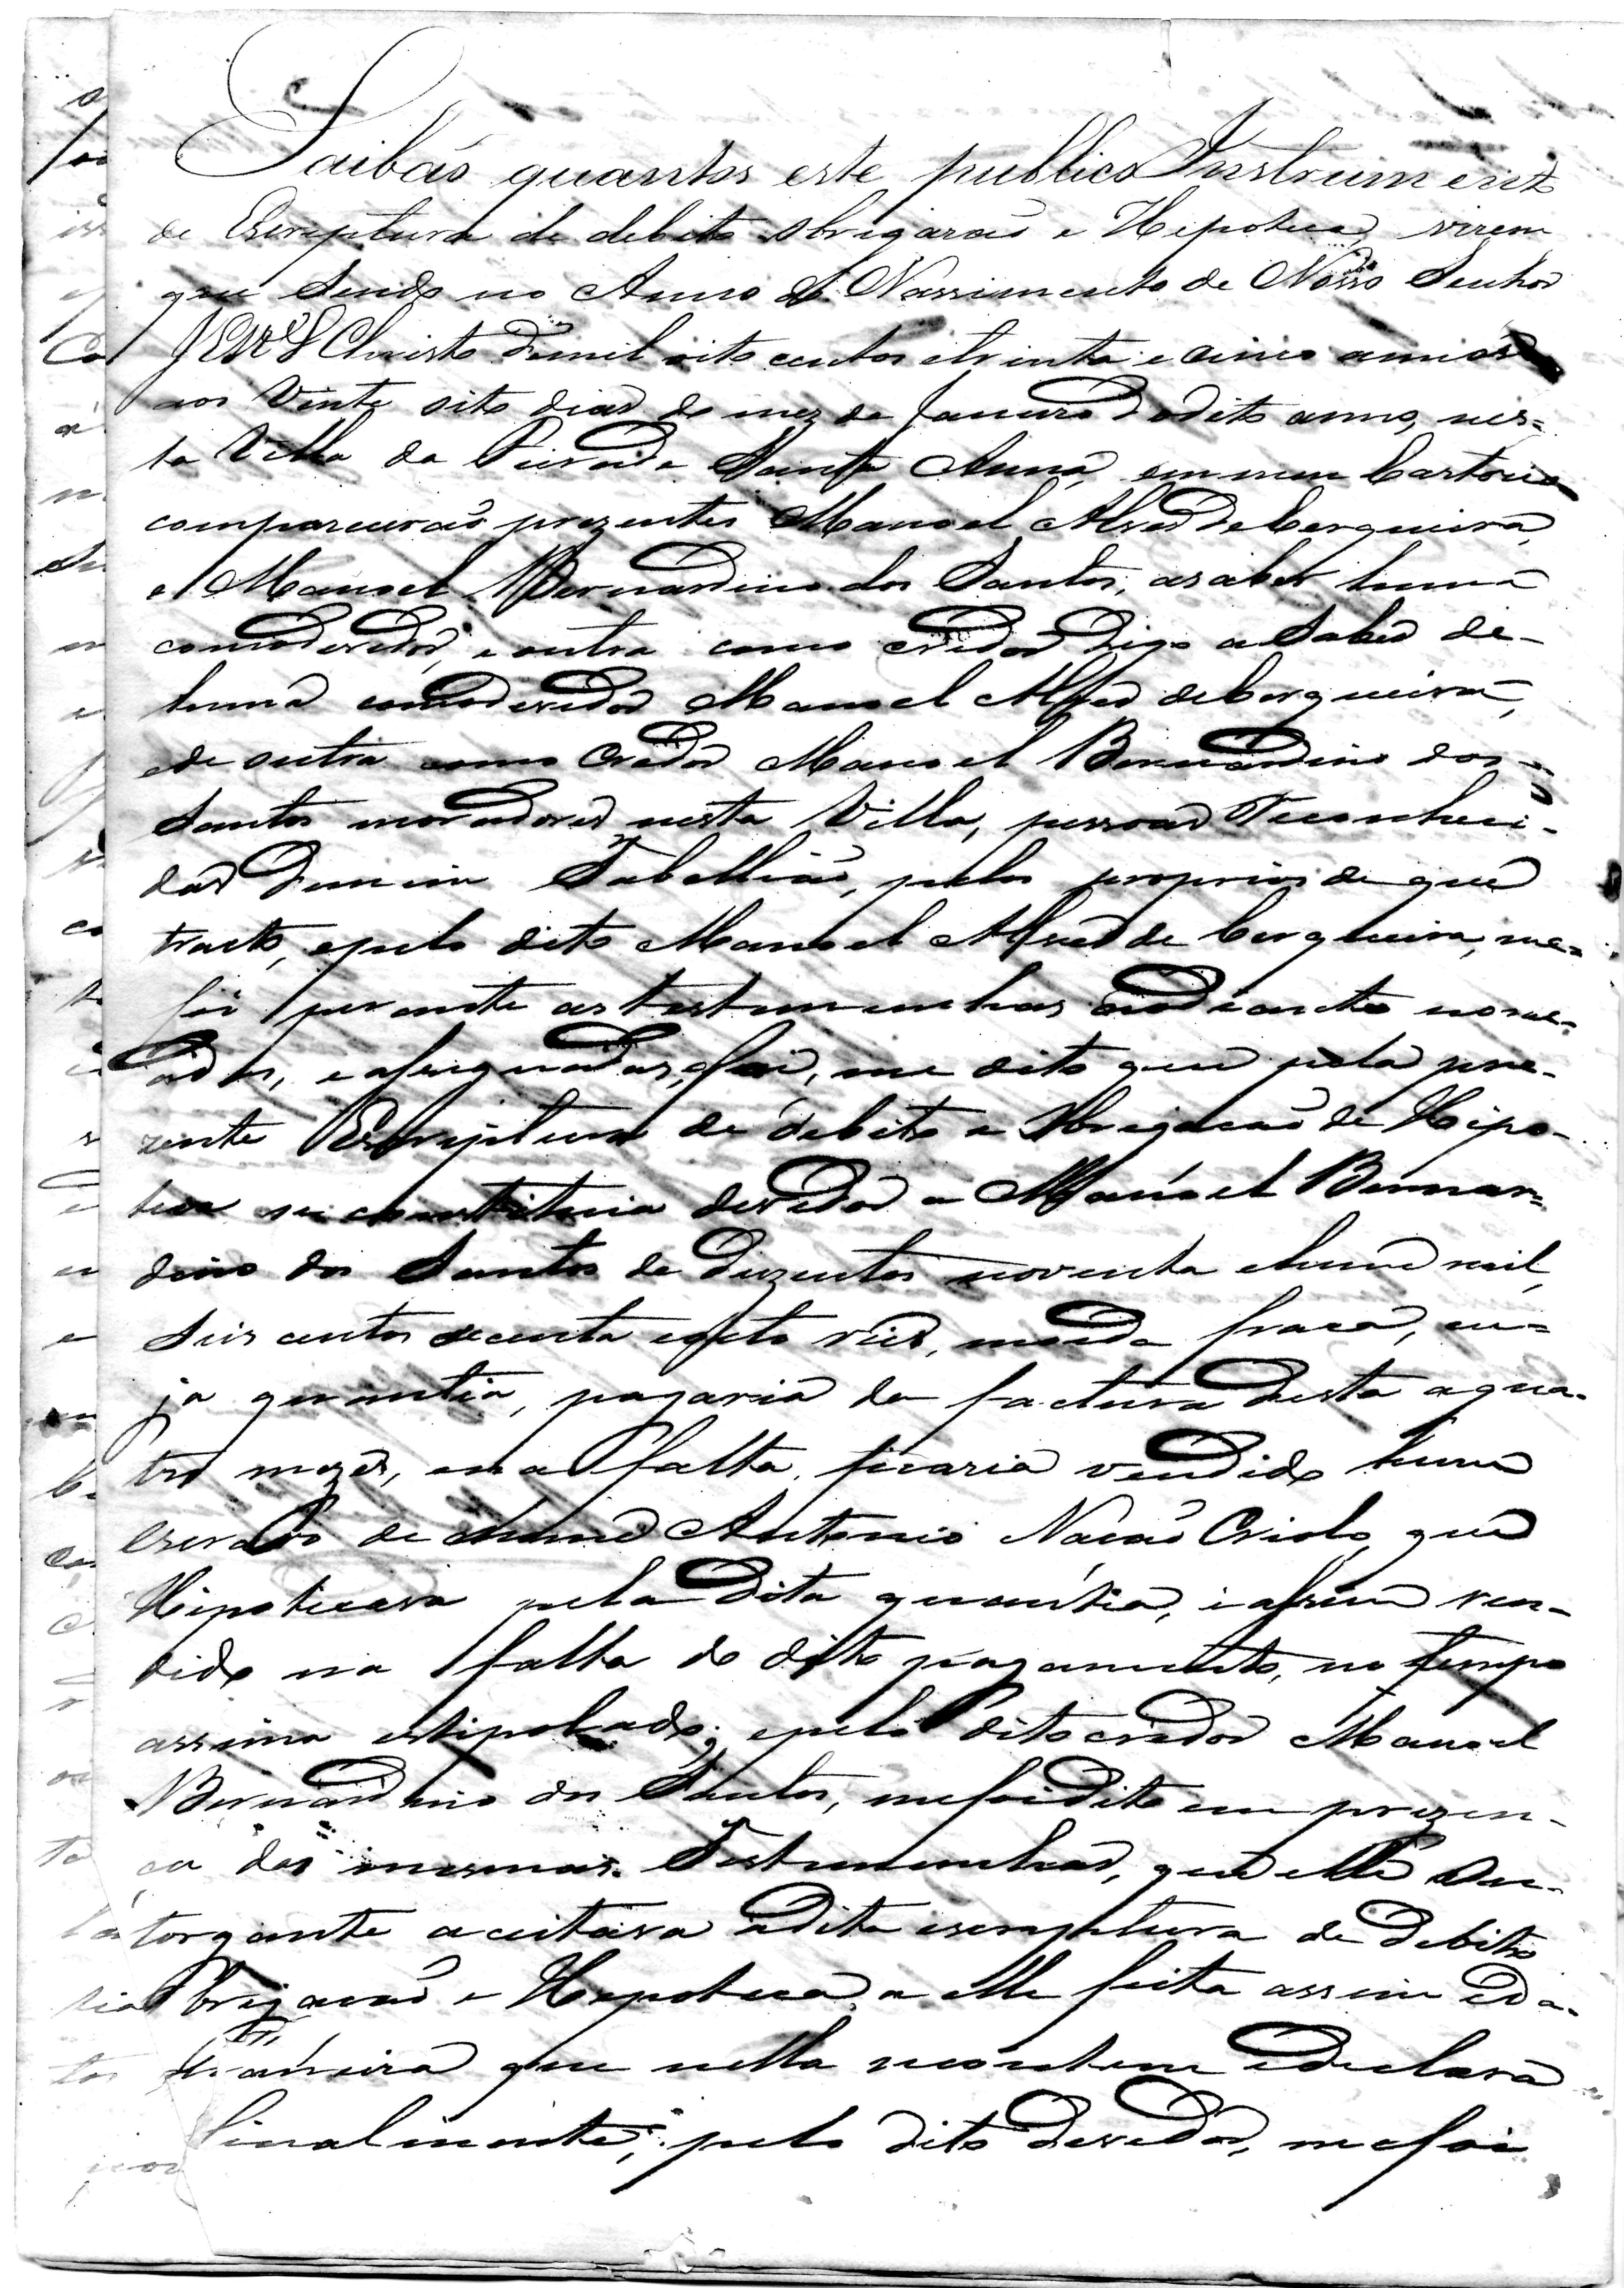 Saibaõ quantos este publico Instrumento
de Escriptura de debito obrigacaõ e Hipoteca, virem
que sendo no Anno do Nassimento de Nosso Senhor
JESUS Christo demil oito centos etrinta e cinco annos
aos Vinte oito dias do mez de Janeiro dodito anno, nes=
ta Villa da Feira de Santa Anna, em meu Cartorio
comparecerao prezentes Manoel Alves de Cerqueira,
e Manoel Bernardino dos Santos, asaber huma
comodevedor, e outra como credor digo a Saber de-
huma comodevedor Manoel Alves deCerqueira,
ede outra como Credor Manoel Bernardino dos
Santos moradores nesta Villa, pessoas Reconheci-
das demim Tabelliaõ, pelos proprios de que
tracto, epelo dito Manoel Alves de Cerqueira, me=
foi perante as testemunhas aodiante nome=
adas, e asignadas, foi, me dito que pela pre-
zente Escriptura de debito e Obrigacaõ de Hipo-
teca se constituia devedor a Manoel Bernar=
dino dos Santos de Duzentos noventa ehum mil,
Seis centos secenta eoito reis, moeda fraca, cu=
ja quantia, pagaria da factura desta aqua-
tro mezes, ena falta, ficaria vendido hum
Escravo de nome Antonio Nacaõ Criolo, que
Hipotecava pela Dita quantia, e asim ven-
dido na falta do dito pagamento, no tempo
assima estipolado; epelo dito credor Manoel
Bernardino dos Santos, mefoi dito em prezen-
ca das mesmas Testemunhas, que elle Ou-
torgante aceitava adita escriptura de Debito
Obrigacaõ e Hipoteca, a elle feita assim eda-
maneira que nella secontem edeclara
Finalmente, pelo dito devedor, mefoi